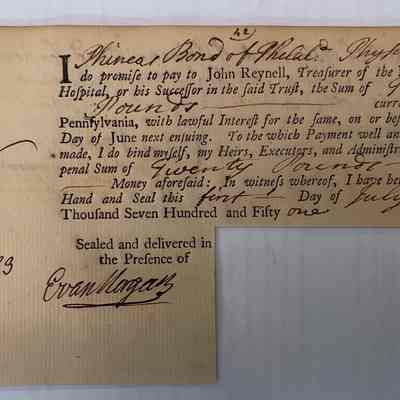 42
I Phineas Bond of Philad. Phys
do promise to pay to John Reynell, Treasurer of the
Hospital, or his Successor in the said Trust, the Sum of
Pounds curr
Pennsylvania, with lawful Interest for the same, on or bef
Day of June next ensuing. To the which Payment well an
made, I do bind myself, my Heirs, Executors, and Administr
penal Sum of Twenty Pounds
Money aforesaid: In witness whereof, I have he
Hand and Seal this first Day of July
Thousand Seven Hundred and Fifty one
Sealed and delivered in
the Presence of
Evan Morgan